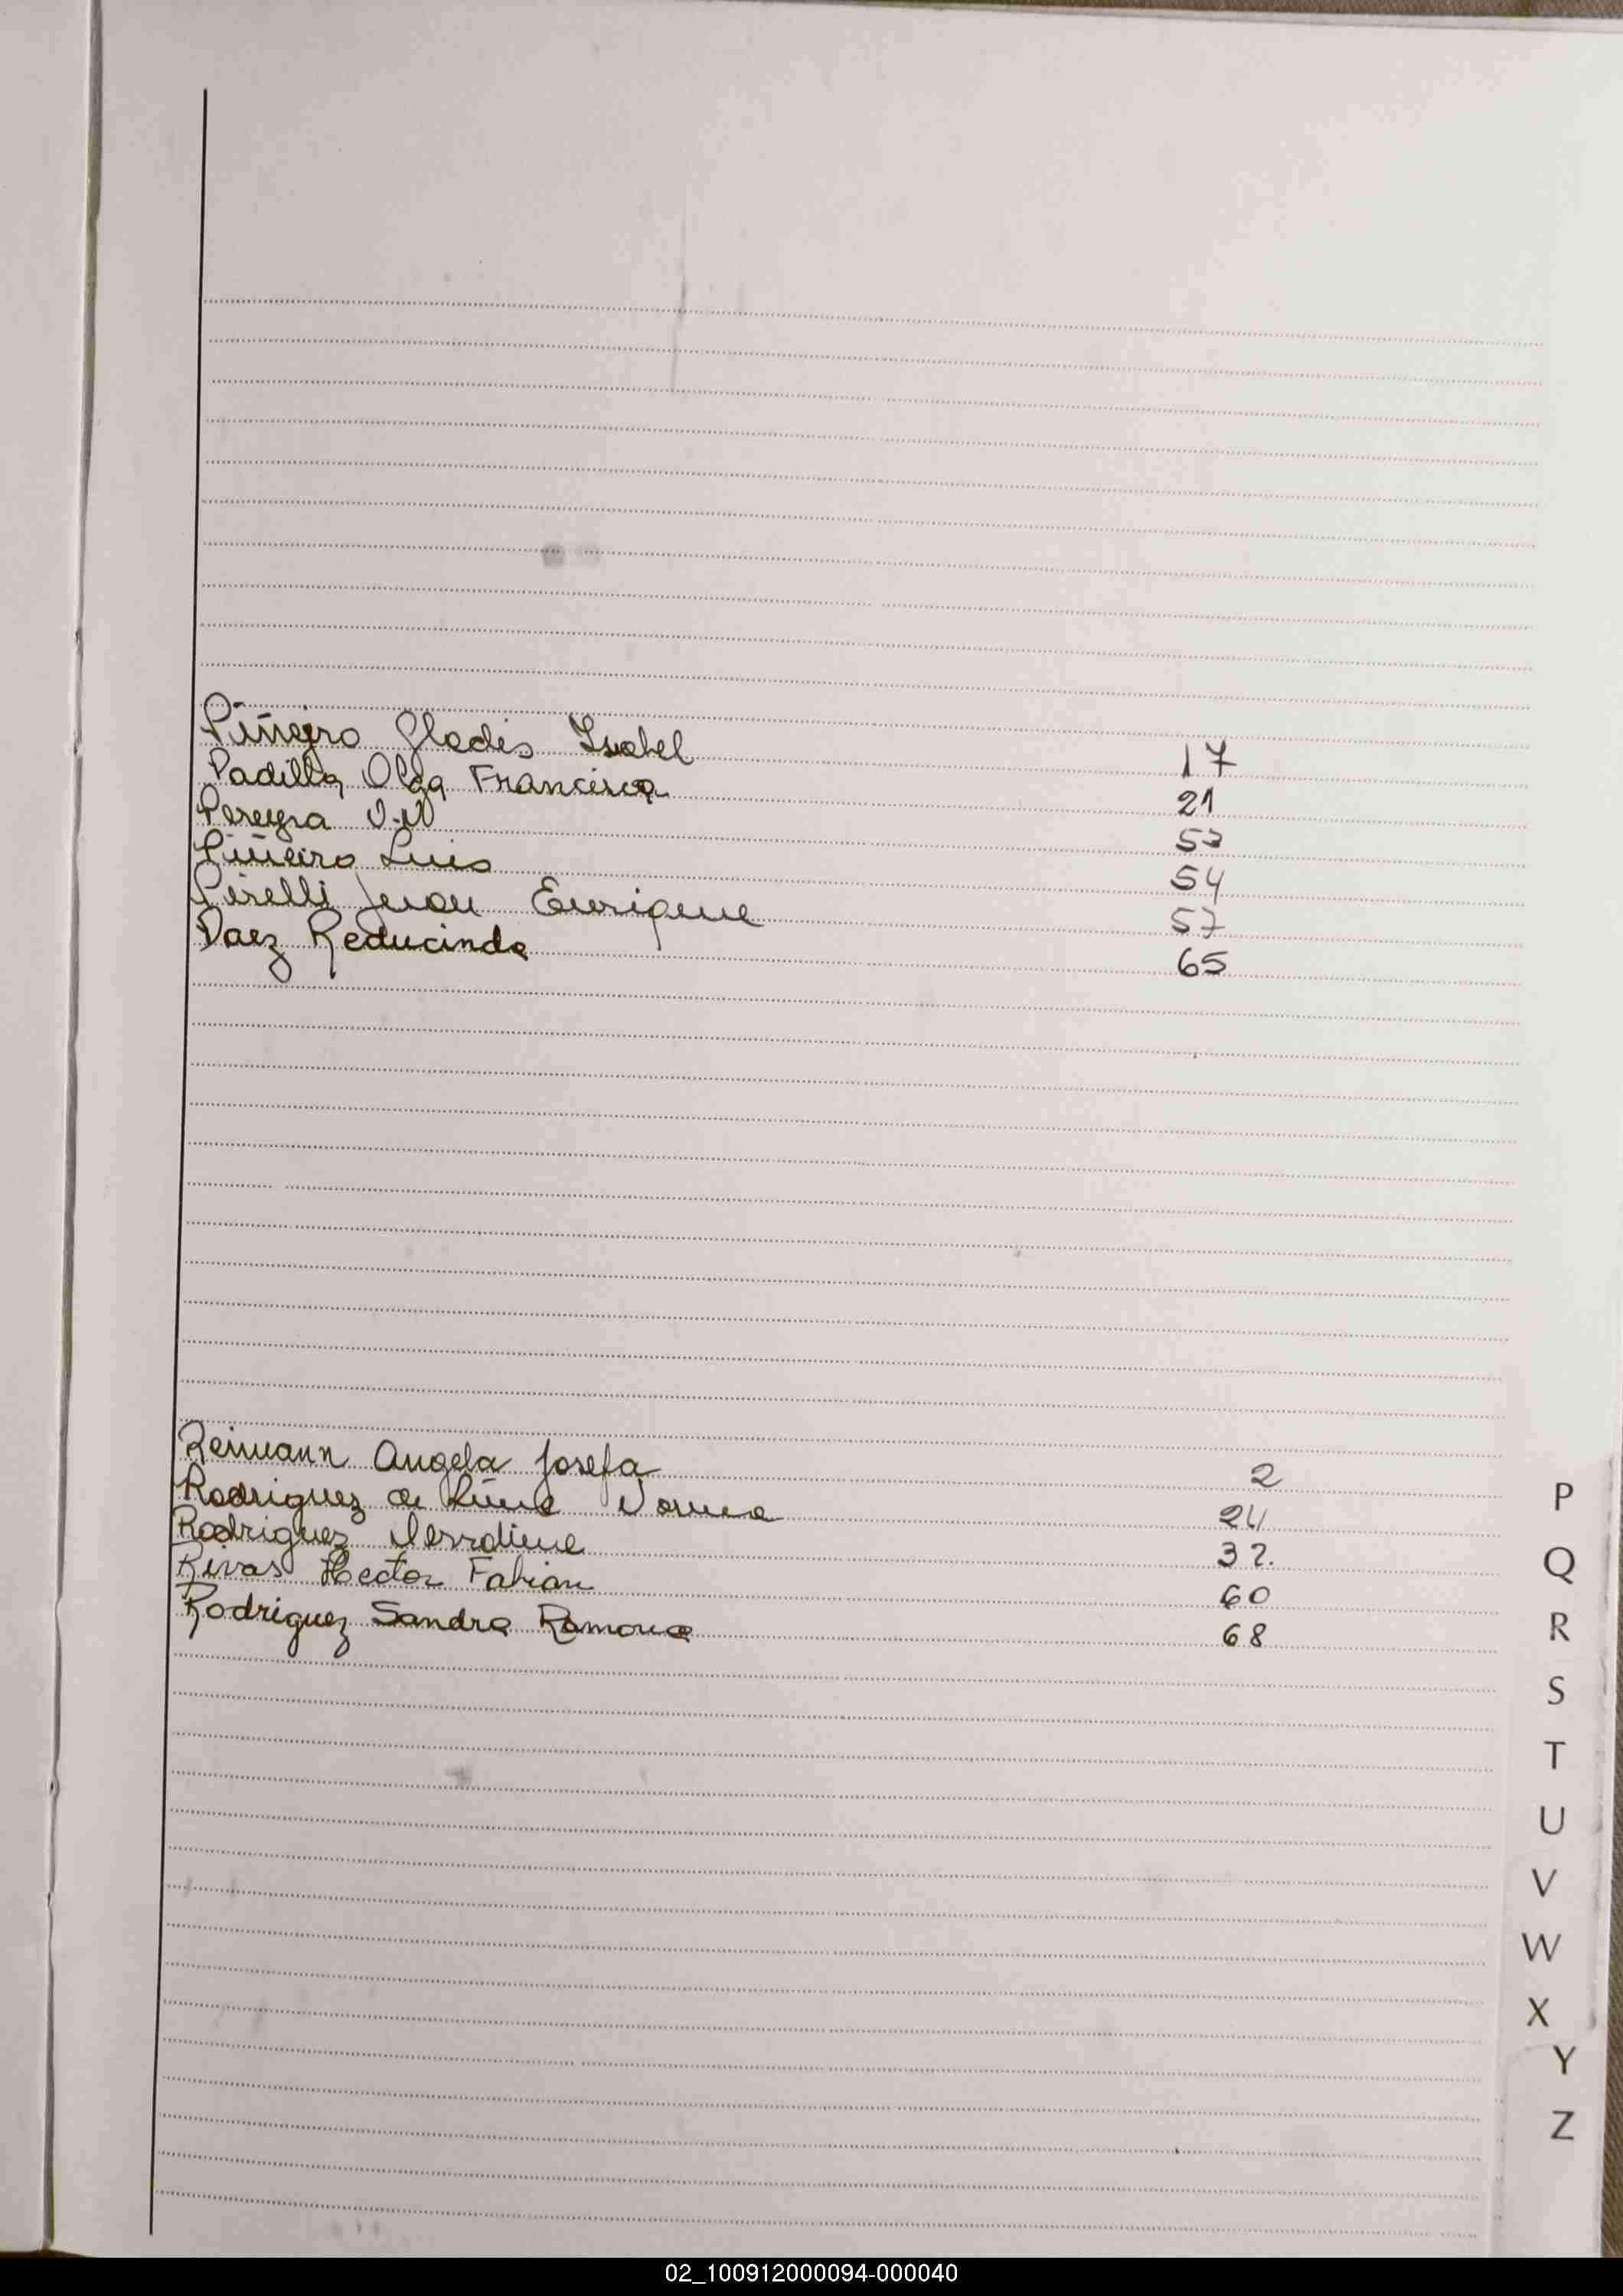 Piñeiro Gladis Isabel 17
Padilla Olga Francisca 21
Pereyra N.N 53
Piñeiro Luis 54
Pirelli Juan Enrique 57
Paez Reducindo 65
Reimann Angela Josefa 2
Rodriguez de Norma 24
Rodriguez 32.
Rivas Hector Fabian 60
Rodriguez Sandra Ramona 68
P
Q
R
S
T
U
V
W
X
Y
Z
02_100912000094-000040